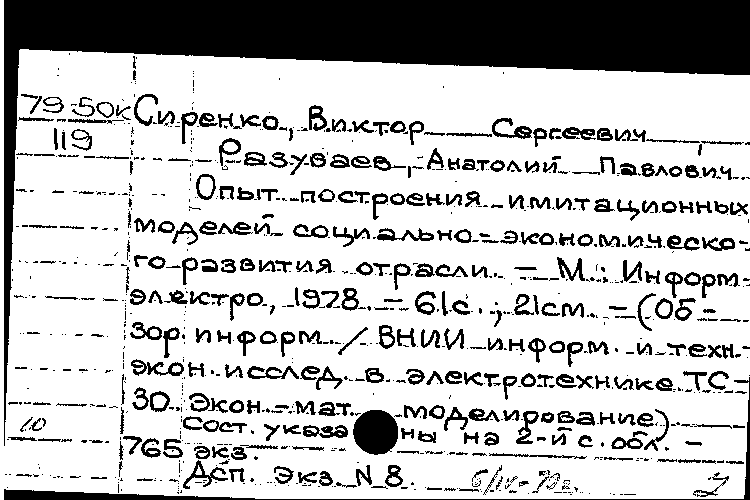 79-50к Сиренко, Виктор Сергеевич
119
Разуваев, Анатолий Павлович
Опыт построения имитационных
моделей социально-экономическо-
го развития отрасли. — М.: Информ-
электро, 1978. — 61с.; 21см. — (Об-
зор. информ. / ВНИИ информ. и техн.-
экон. исслед. в электротехнике. ТС-
30. Экон.-мат. моделирование).
10 Сост. указаны на 2-й с. обл. —
765 экз.
Дсп. Экз. N 8.